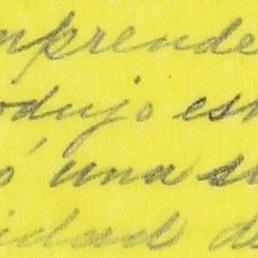 mprende
odujo es
ó una s
idad de